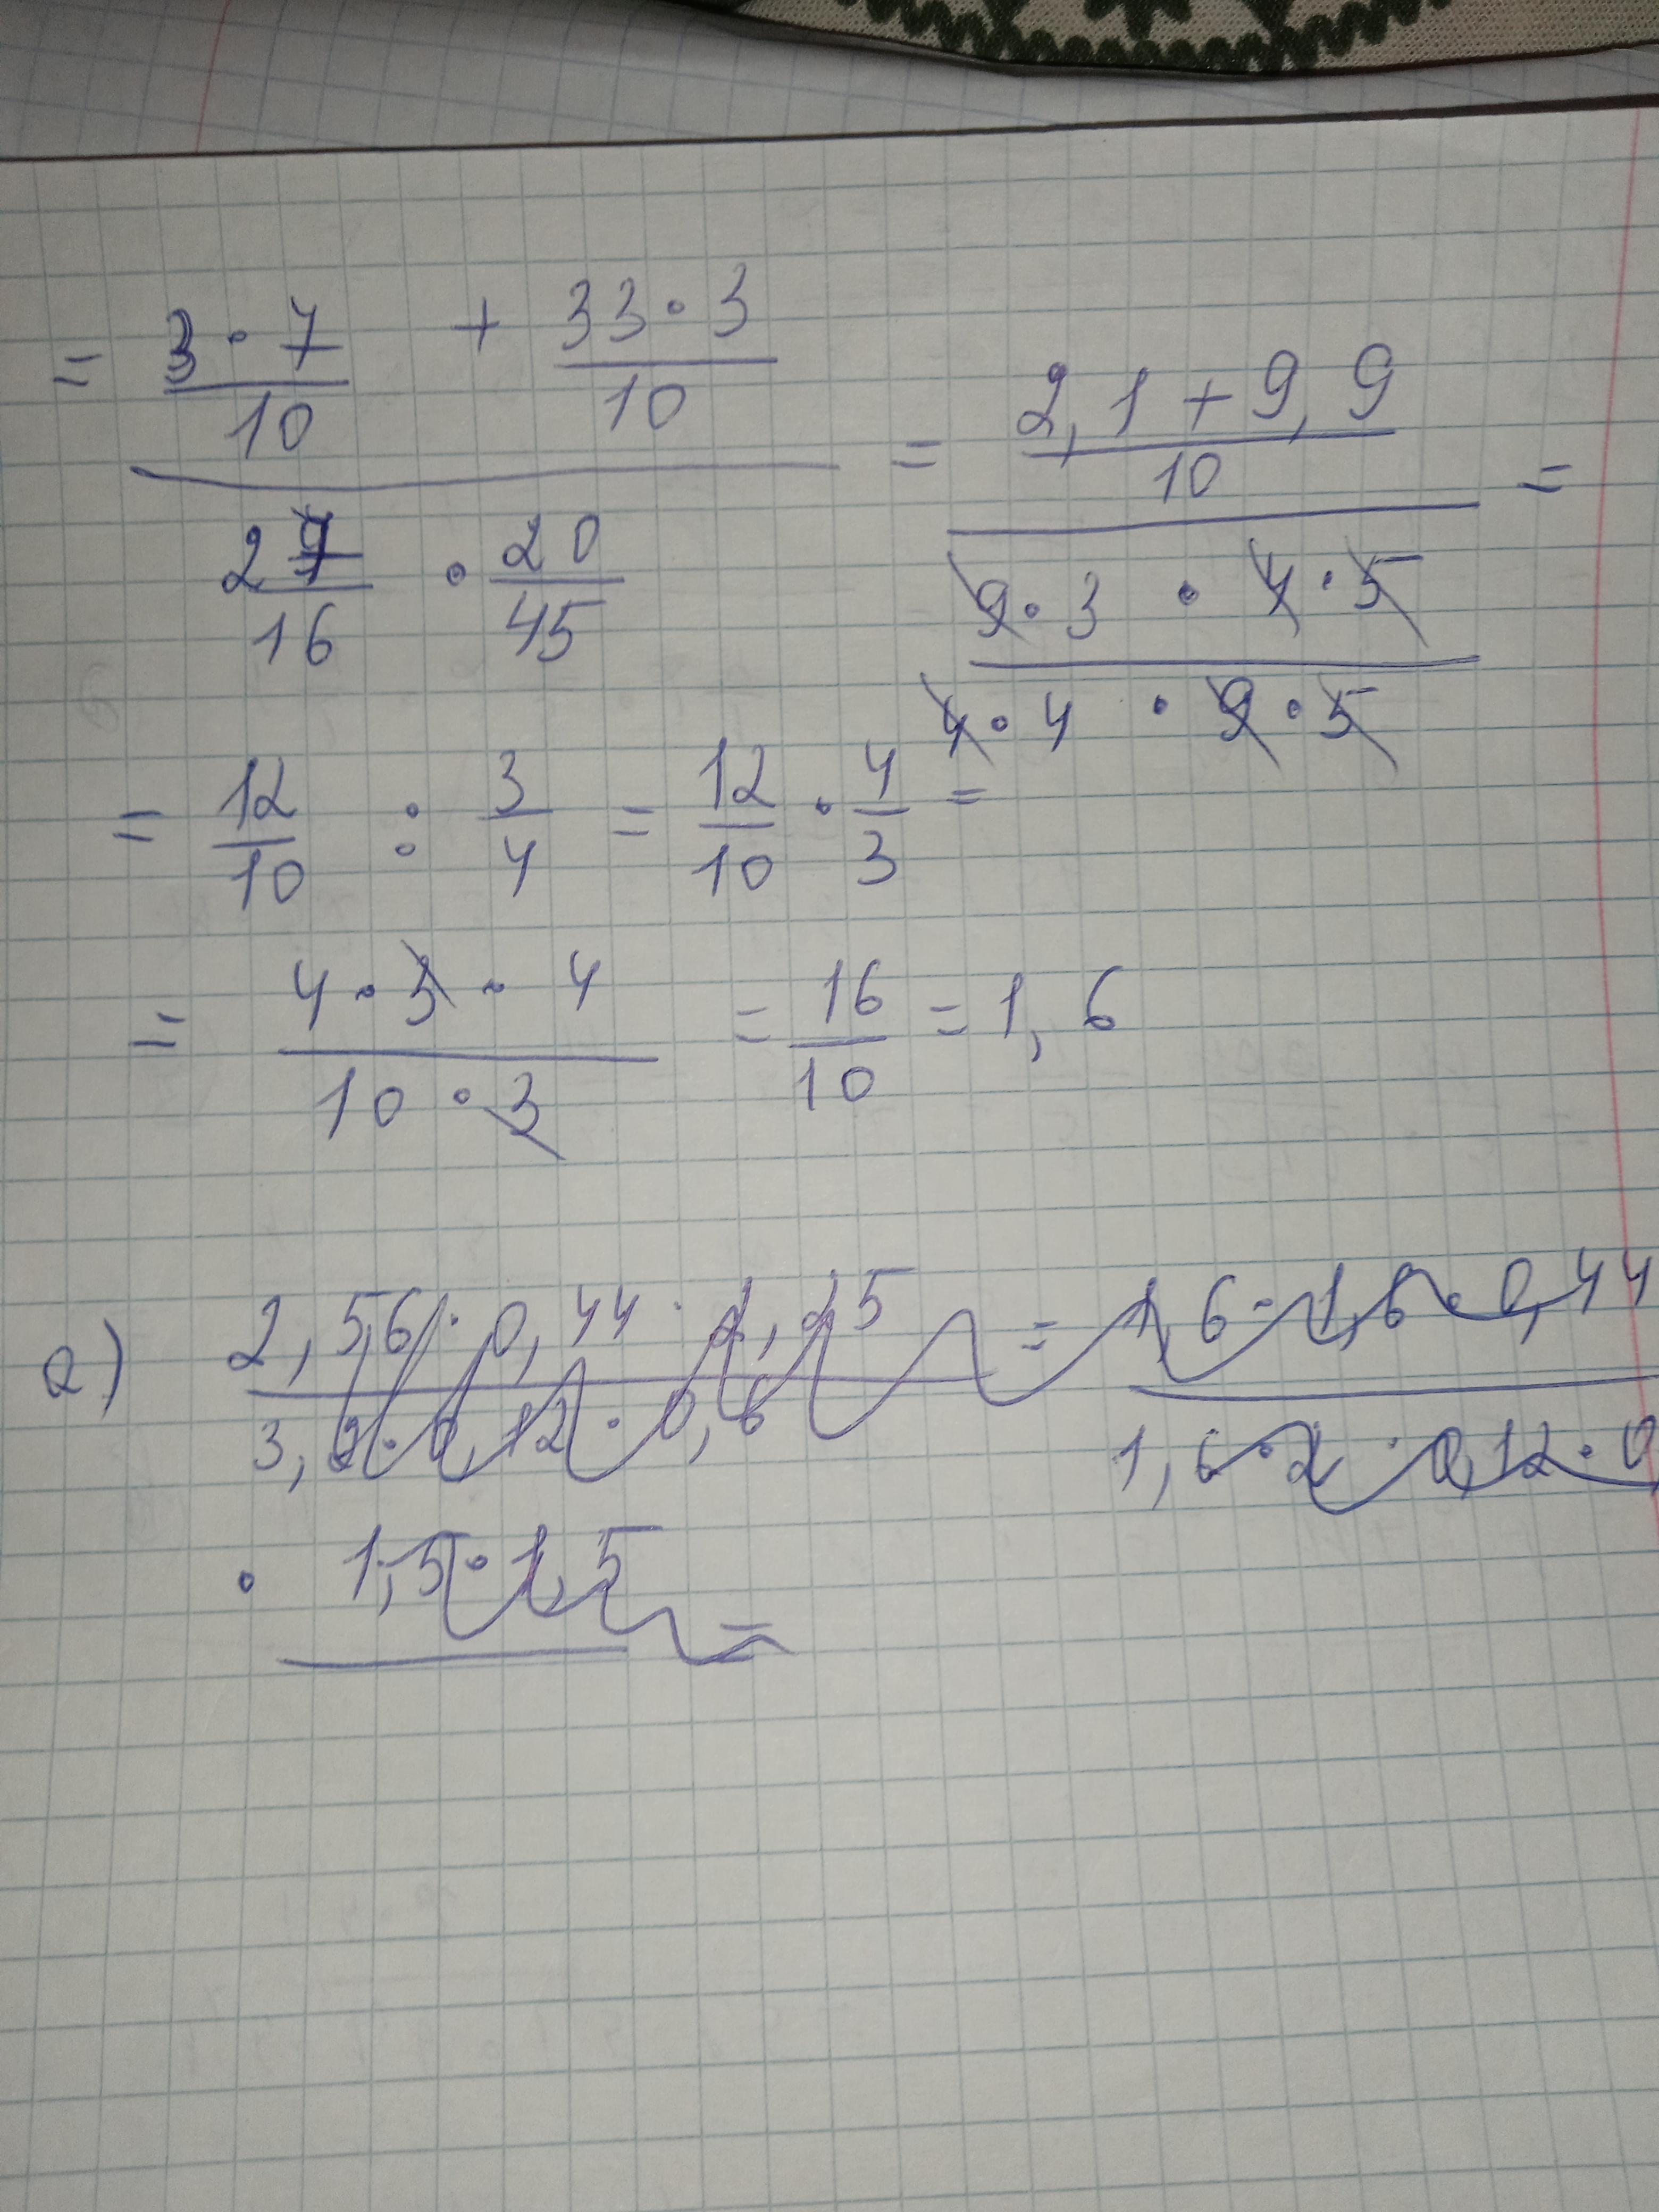 = (3·7/10 + 33·3/10) / (27/16 · 20/45) = ((2,1 + 9,9)/10) / ((9·3 · 4·5)/(4·4 · 9·5)) =
= 12/10 : 3/4 = 12/10 · 4/3 =
= (4·3·4)/(10·3) = 16/10 = 1,6
a) (2,56 · 0,44 · 2,25)/(3,2 · 0,12 · 0,6) = (1,6 · 1,6 · 0,44)/(1,6 · 2 · 0,12 · 0,
· 1,5 · 1,5 =